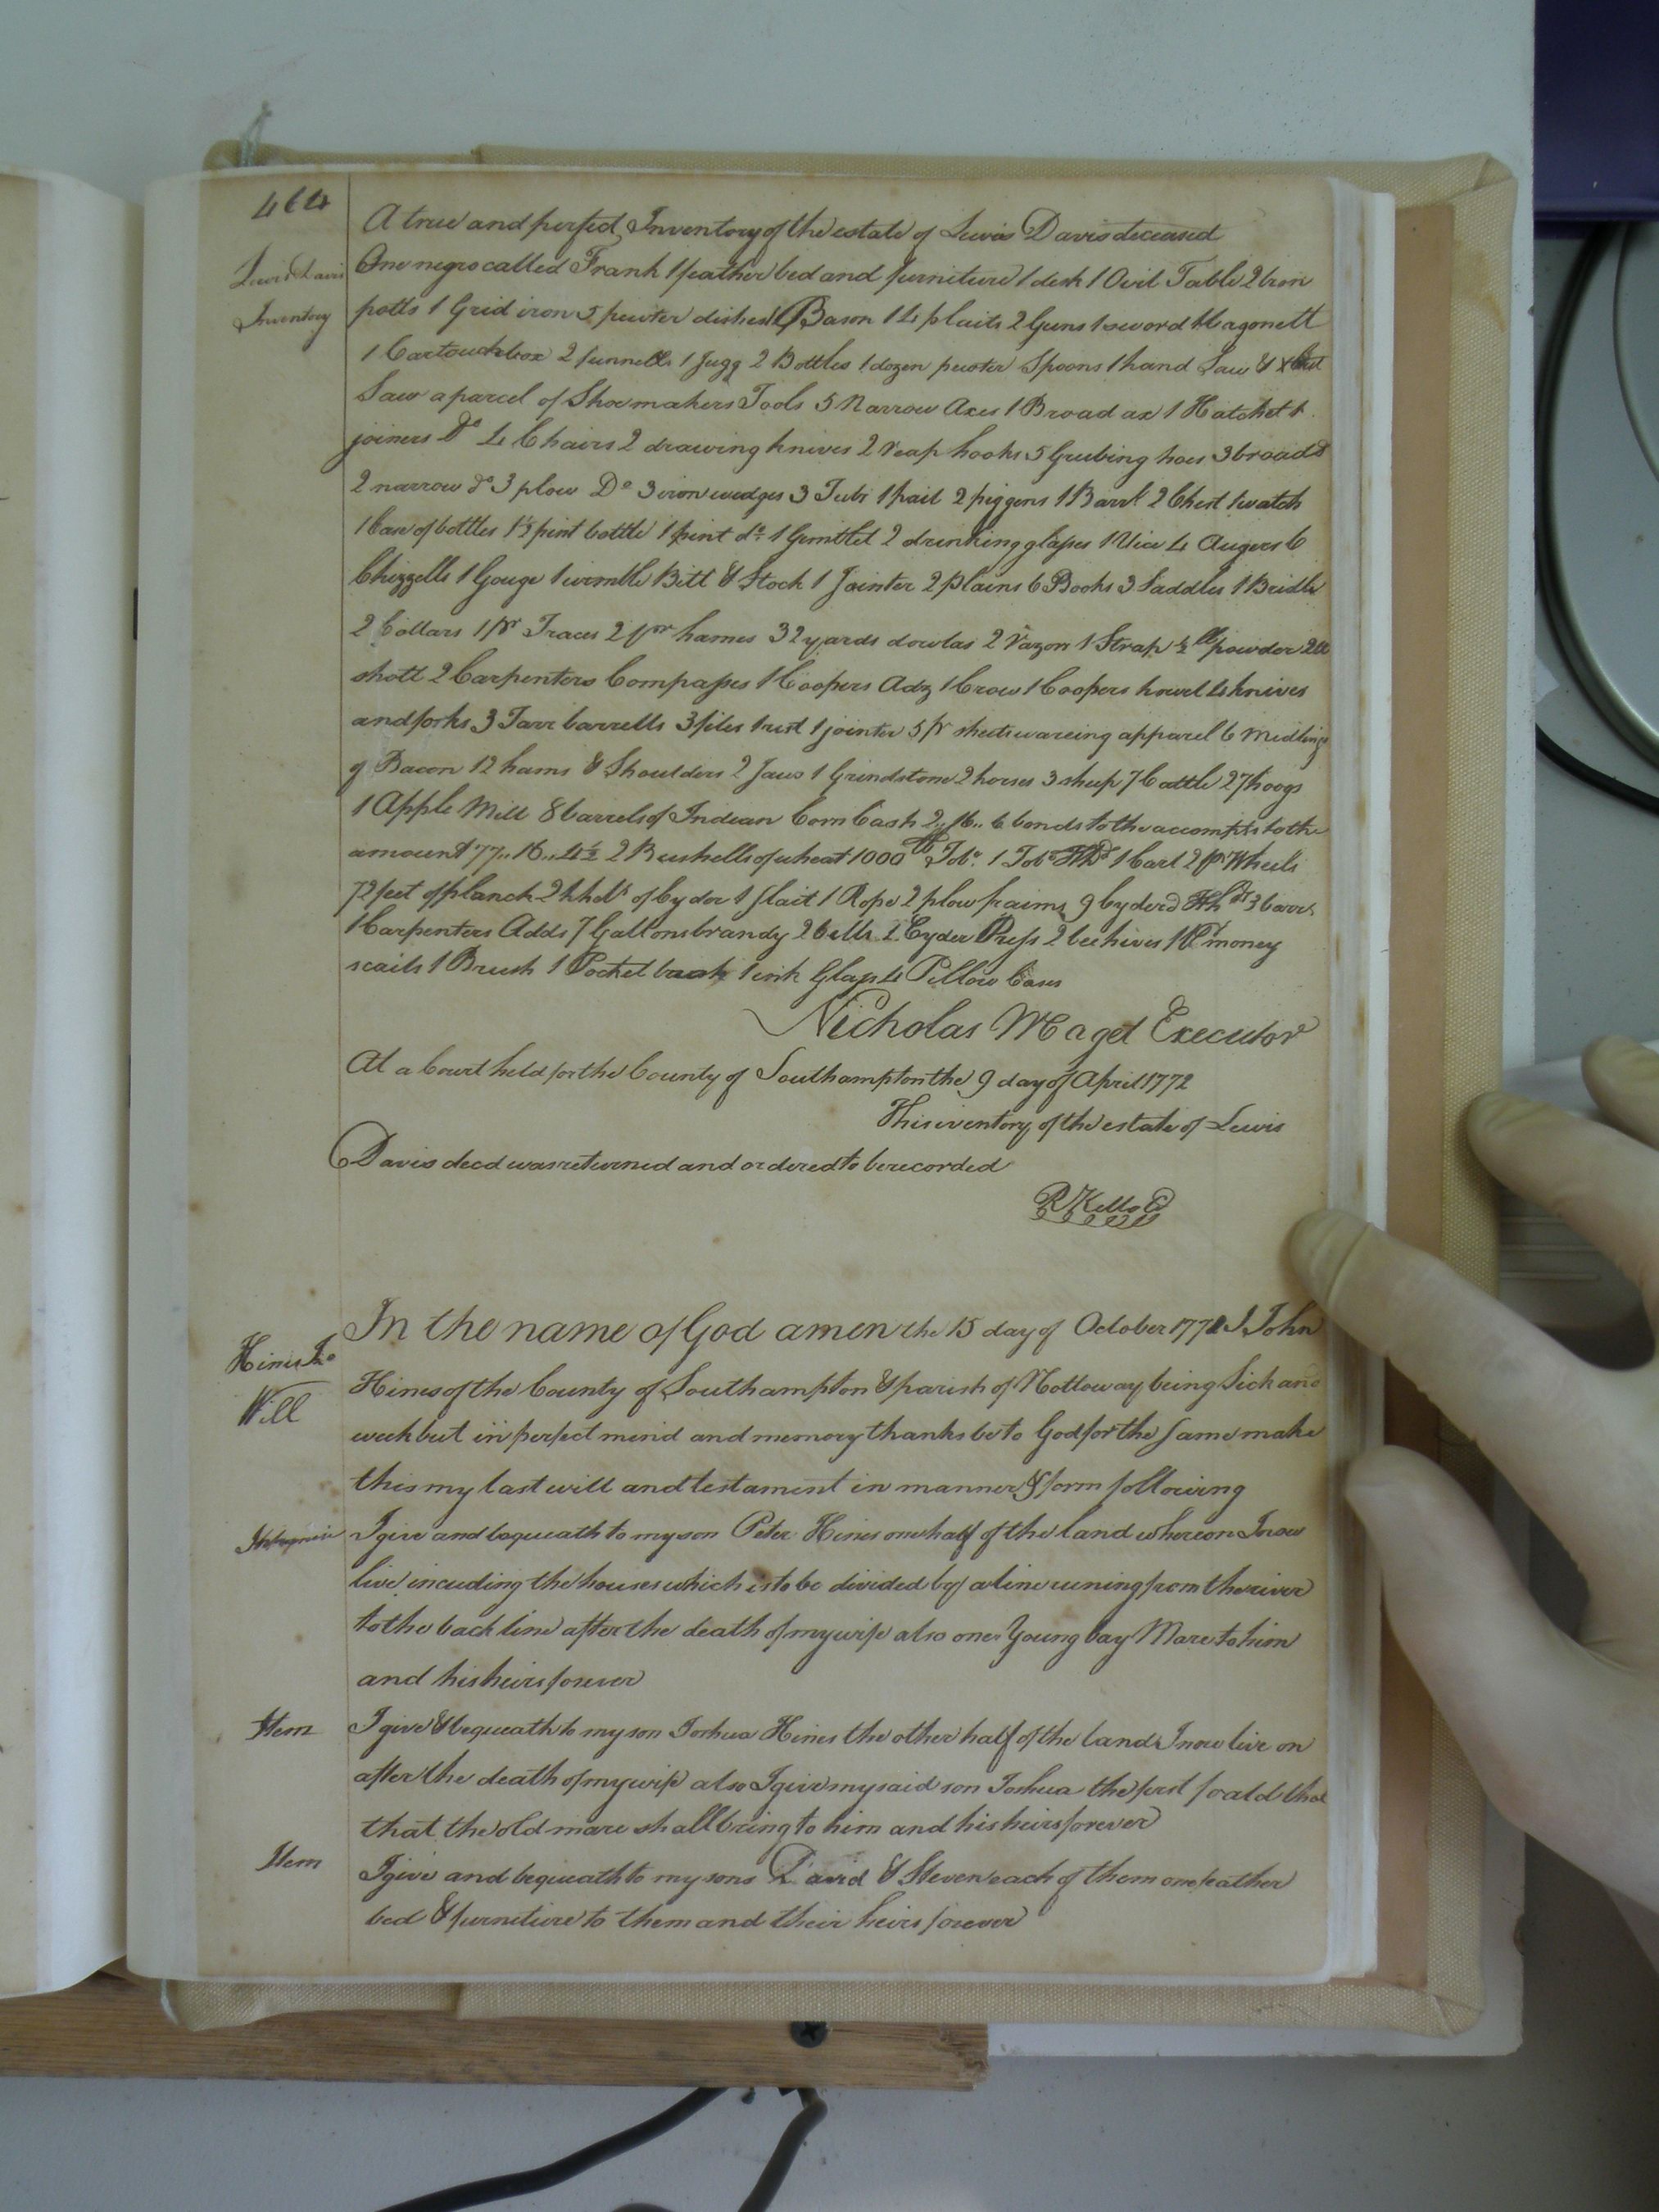 464
A true and perfect Inventory of the estate of Lewis Davis deceased
Lewis Davis
Inventory
One negro called Frank 1 feather bed and furniture 1 desk 1 Ovil Table 2 iron
potts 1 Grid iron 5 pewter dishes 1 Bason 14 plaits 2 Guns 1 sword 1 Bagonett
1 Cartouchbox 2 funnells 1 Jugg 2 Bottles 1 dozen pewter Spoons 1 hand Saw & x Cut
Saw a parcel of Shoemakers Tools 5 Narrow Axes 1 Broad ax 1 Hatchet 1
joiners Do 4 Chairs 2 drawing knives 2 reap hooks 5 Grubing hoes 3 broad do
2 narrow do 3 plow Do 3 iron wedges 3 Tubs 1 pail 2 piggens 1 Barrl 2 Chest 1 watch
1 Case of bottles 1 ½ pint bottle 1 pint do 1 Gimblet 2 drinking glasses 1 Vice 4 Augers 6
Chizzells 1 Gouge 1 wimble Bitt & Stock 1 Jointer 2 plains 6 Books 3 Saddles 1 Bridle
2 Collars 1 pr Traces 2 pr hames 32 yards dowlas 2 razon 1 Strap ½ lb powder 2 lb
shott 2 Carpenters Compasses 1 Coopers Adz 1 Crow 1 Coopers howel 4 knives
and forks 3 Tarr barrells 3 files 1 rest 1 jointer 5 pr sheets wareing apparel 6 Midlings
of Bacon 12 hams & Shoulders 2 Jaws 1 Grindstone 2 horses 3 sheep 7 Cattle 27 hoogs
1 Apple Mill 8 barrels of Indian Corn Cash 2,, 16,, 6 bonds to the accompts to the
amount 77,, 16,, 4½ 2 Bushells of wheat 1000 lb Tobo. 1 Tobo Hhd 1 Cart 2 pr Wheels
72 feet of planck 2 hhds of Cyder 1 flait 1 Rope 2 plow fraims 9 Cyder Hhds 3 barrs
1 Carpenters Adds 7 Gallons brandy 2 bells 1 Cyder Press 2 bee hives 1 pr money
scails 1 Brush 1 Pocket book 1 ink Glass 4 Pillow Cases
Nicholas Maget Executor
At a Court held for the County of Southampton the 9 day of April 1772
This inventory of the estate of Lewis
Davis decd was returned and ordered to be recorded
R Kello C
Hines Jno
Will
In the name of God amen the 15 day of October 1771 I John
Hines of the County of Southampton & parish of Nottoway being Sick and
week but in perfect mind and memory thanks be to God for the same make
this my last will and testament in manner & form following
I give and bequeath to my son Peter Hines one half of the land whereon I now
live incuding the houses which is to be divided by a line runing from the river
to the back line after the death of my wife also one Young bay Mare to him
and his heirs forever
Item I give & bequeath to my son Joshua Hines the other half of the land I now live on
after the death of my wife also I give my said son Joshua the first foald that
that the old mare shall bring to him and his heirs forever
Item I give and bequeath to my sons David & Steven each of them one feather
bed & furniture to them and their heirs forever